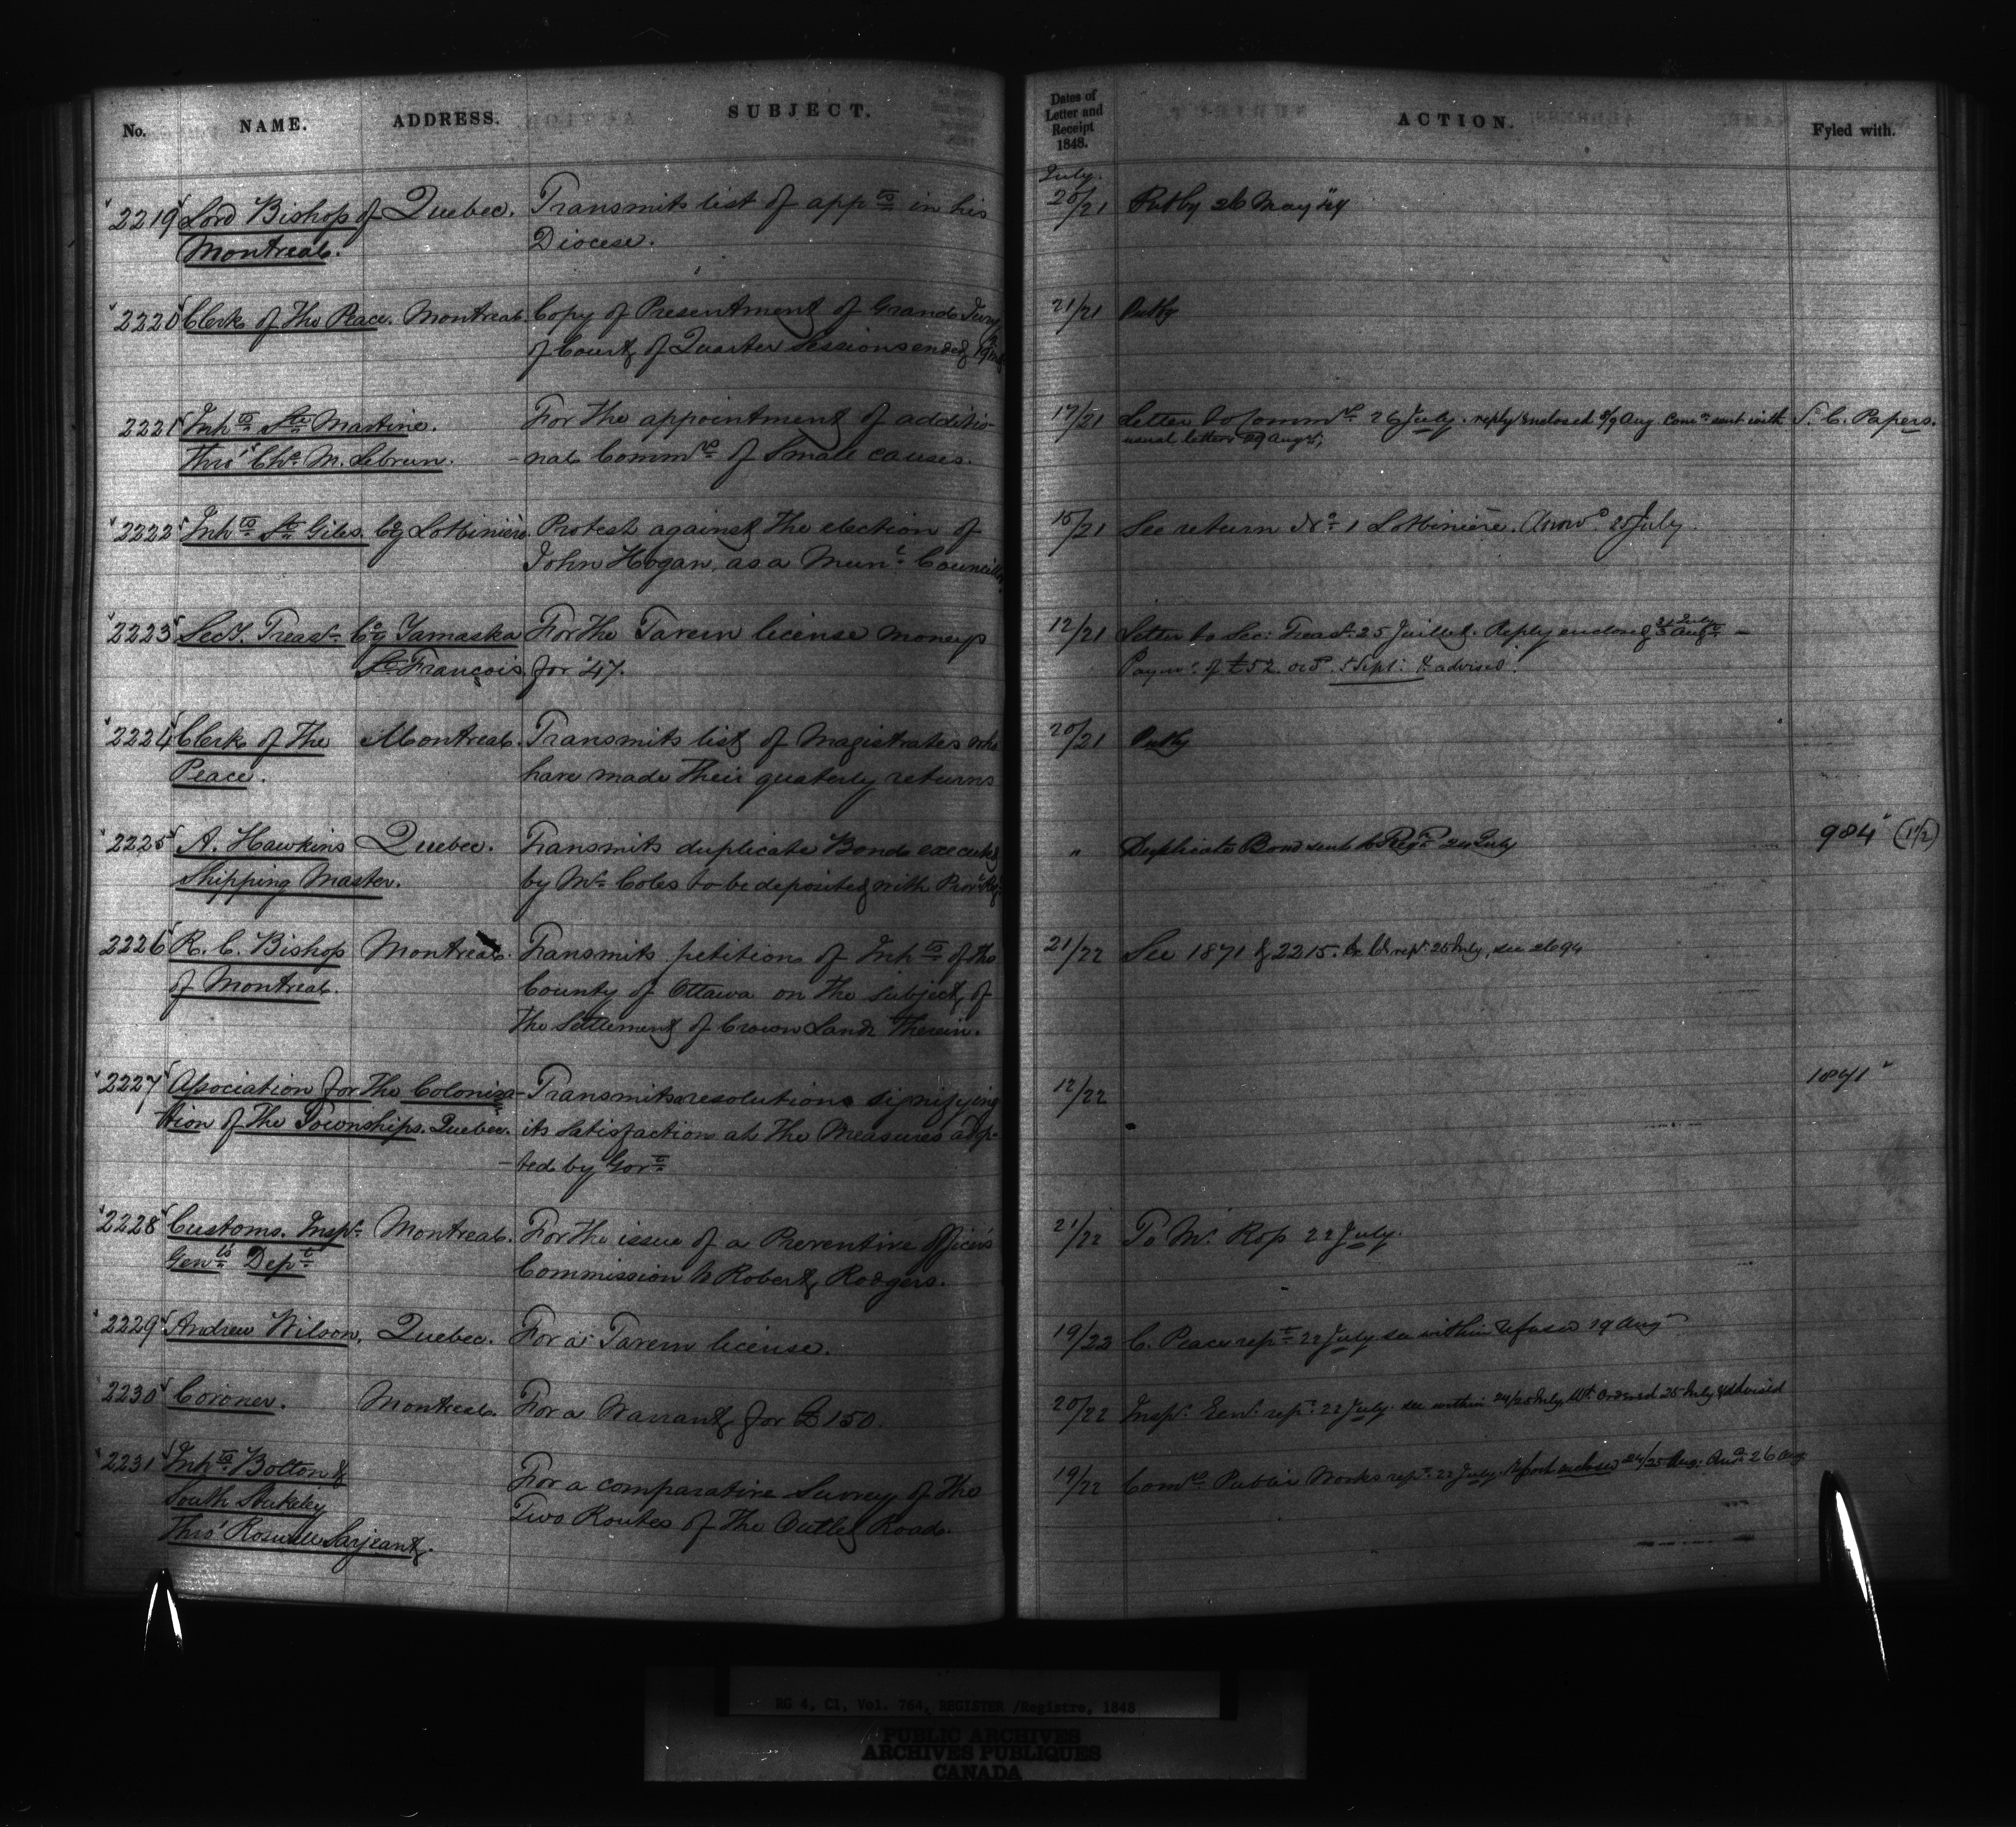 No. NAME. ADDRESS. SUBJECT. Dates of Letter and Receipt 1848. ACTION. Fyled with.
July.
2219 Lord Bishop of Quebec. Transmits list of appts in his 20/21 Put by 26 May '49
Montreal. Diocese.
2220 Clerk of the Peace. Montreal. Copy of Presentment of Grand Jury 21/21 Put by
of Court of Quarter Sessions ended 19 inst
2221 Inhts Ste Martine. For the appointment of additio- 17/21 Letter to Commrs 26 July. reply enclosed 8/9 Aug. Comn sent with S. C. Papers.
Thro' Chs M. Lebrun. -nal Commrs of Small causes. usual letter 29 Augt,
2222 Inhts St Giles. Coy Lotbinière Protest against the election of 15/21 See return No 1 Lotbinière. Answd 25 July.
John Hogan, as a Munl Councillor
2223 Secy. Treasr Coy Yamaska For the Tavern license moneys 12/21 Letter to Sec: Treasr 25 Juillet. Reply enclosed 31 July 3 Augt —
St François. for '47. Paymt of £52. ord 5 Sept: & advised.
2224 Clerk of the Montreal. Transmits list of Magistrates who 20/21 Put by
Peace. have made their quaterly returns
2225 A. Hawkins Quebec. Transmits duplicate Bond executed " Duplicate Bond sent to Regr 24 July 984 (1/2)
Shipping Master. by Mr Coles to be deposited with Provl Reg.
2226 R. C. Bishop Montreal. Transmits petitions of Inhts of the 21/22 See 1871 & 2215. Ex. Cl. rept 25 July, see 2694
of Montreal. County of Ottawa on the subject of
the Settlement of Crown Lands therein.
2227 Association for the Coloniza- Transmits resolutions signifying 12/22 1841
tion of the Townships. Quebec. its satisfaction at the Measures adop-
-ted by Govt
2228 Customs. Inspr Montreal. For the issue of a Preventive Officer's 21/22 To Mr. Ross 22 July.
Genls Dept Commission to Robert Rodgers.
2229 Andrew Wilson. Quebec. For a Tavern license. 19/22 C. Peace rept 22 July. see within refused 19 Aug
2230 Coroner. Montreal. For a Warrant for £150. 20/22 Inspr. Genl. rept 22 July. see within 24/25 July Wt. Ordered 25 July & advised
2231 Inhts Bolton & For a comparative Survey of the 19/22 Comrs Public Works rept 22 July. Report enclosed 24/25 Aug. Ansd 26 Aug
South Stukeley Two Routes of the Outlet Road.
Thro' Roswell Sarjeant.
RG 4, C1, Vol. 764, REGISTER /Registre, 1848
PUBLIC ARCHIVES
ARCHIVES PUBLIQUES
CANADA